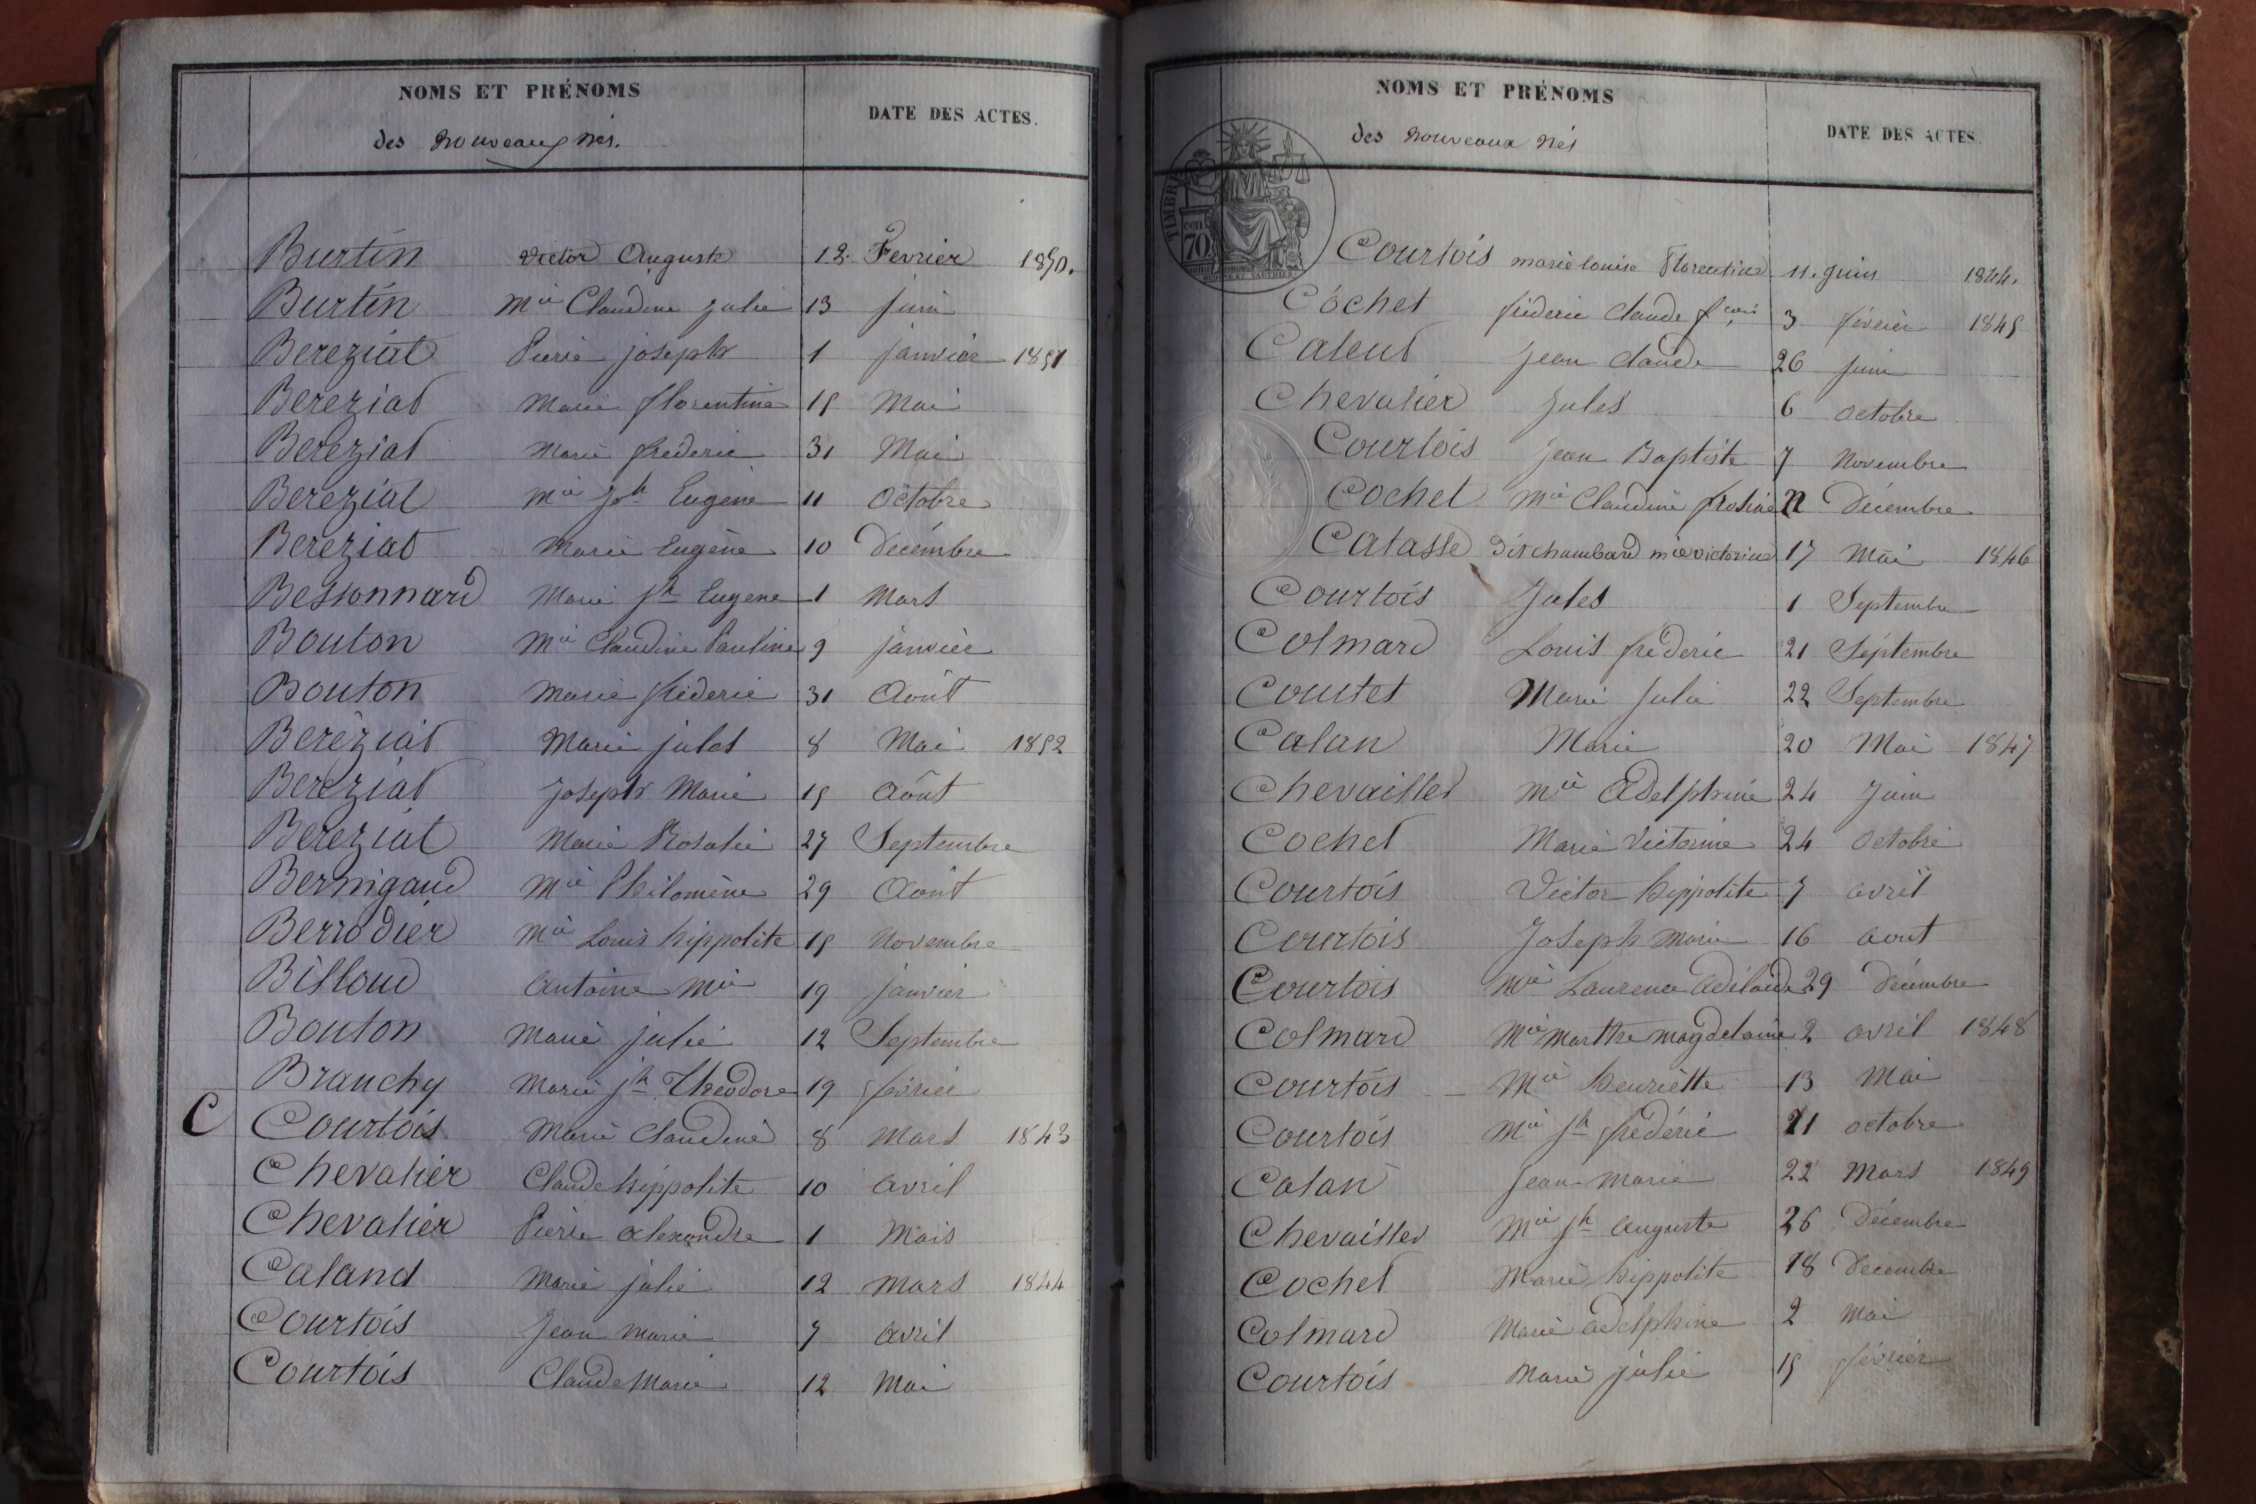 NOMS ET PRÉNOMS
des nouveaux nés.
DATE DES ACTES.
Burtin Victor Auguste 12. Fevrier 1850.
Burtin Mie Claudine Julie 13 juin
Bereziat Pierre joseph 1 janvier 1851
Bereziat Marie florentine 15 Mai
Bereziat Marie frederic 31 Mai
Bereziat Mie Jh Eugène 11 Octobre
Bereziat Marie Eugène 10 Decémbre
Bessonnard Marie Jh Eugene 1 Mars
Bouton Mie Claudine Pauline 9 janvier
Bouton Marie fréderic 31 Août
Beréziat Marie jules 8 Mai 1852
Bereziat Joseph Marie 15 Août
Bereziat Marie Rosalie 27 Septembre
Bernigaud Mie Philomène 29 Août
Berrodier Mie Louis hippolite 15 Novembre
Billoud Antoine Mie 19 janvier
Bouton Marie julie 12 Septembre
Branchy Marie jh Théodore 19 février
C Courtois Marie Claudine 8 Mars 1843
Chevalier Claude hippolite 10 Avril
Chevalier Pierre alexandre 1 Mars
Caland Marie julie 12 Mars 1844
Courtois Jean Marie 7 Avril
Courtois Claude Marie 12 Mai
NOMS ET PRÉNOMS
des nouveaux nés
DATE DES ACTES.
TIMBRE
70
Courtois marie louise Florentine 11. Juin 1844.
Cochet fréderic Claude fcois 3 février 1845
Caleut Jean Claude 26 juin
Chevalier Jules 6 Octobre
Courtois Jean Baptiste 7 Novembre
Cochet Mie Claudine 22 Décembre
Catasse dit chambard mie victorine 17 Mai 1846
Courtois Jules 1 Septembre
Colmard Louis fréderic 21 Séptembre
Coutet Marie Julie 22 Septembre
Calan Marie 20 Mai 1847
Chevailler Mie Adelphine 24 Juin
Cochet Marie Victorine 24 Octobre
Courtois Victor hippolite 7 avril
Courtois Joseph Marie 16 Aout
Courtois Mie Laurence Adélaide 29 Décembre
Colmard Mie Marthe Magdelaine 2 avril 1848
Courtois Mie henriette 13 Mai
Courtois Mie jh fréderic 21 octobre
Calan Jean Marie 22 Mars 1849
Chevailler Mie jh Auguste 26 Décembre
Cochet Marie hippolite 18 Decembre
Colmard Marie adelphine 2 Mai
Courtois Marie julie 15 février